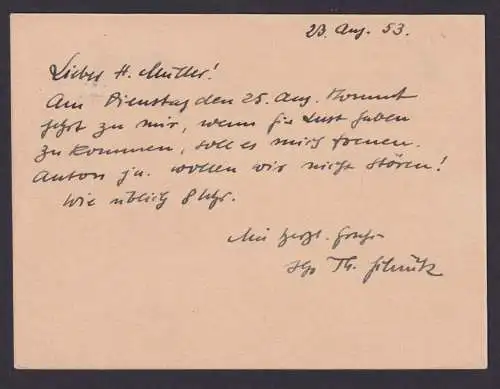 23. Aug. 53.
Lieber H. Müller!
Am Dienstag den 25. Aug. kommt
zu mir, wenn Sie Lust haben
zu kommen, soll es mich freuen.
Anton ja. wollen wir nicht stören!
Wie üblich 8 Uhr.
Mit herzl. Gruß
Ihr Th.